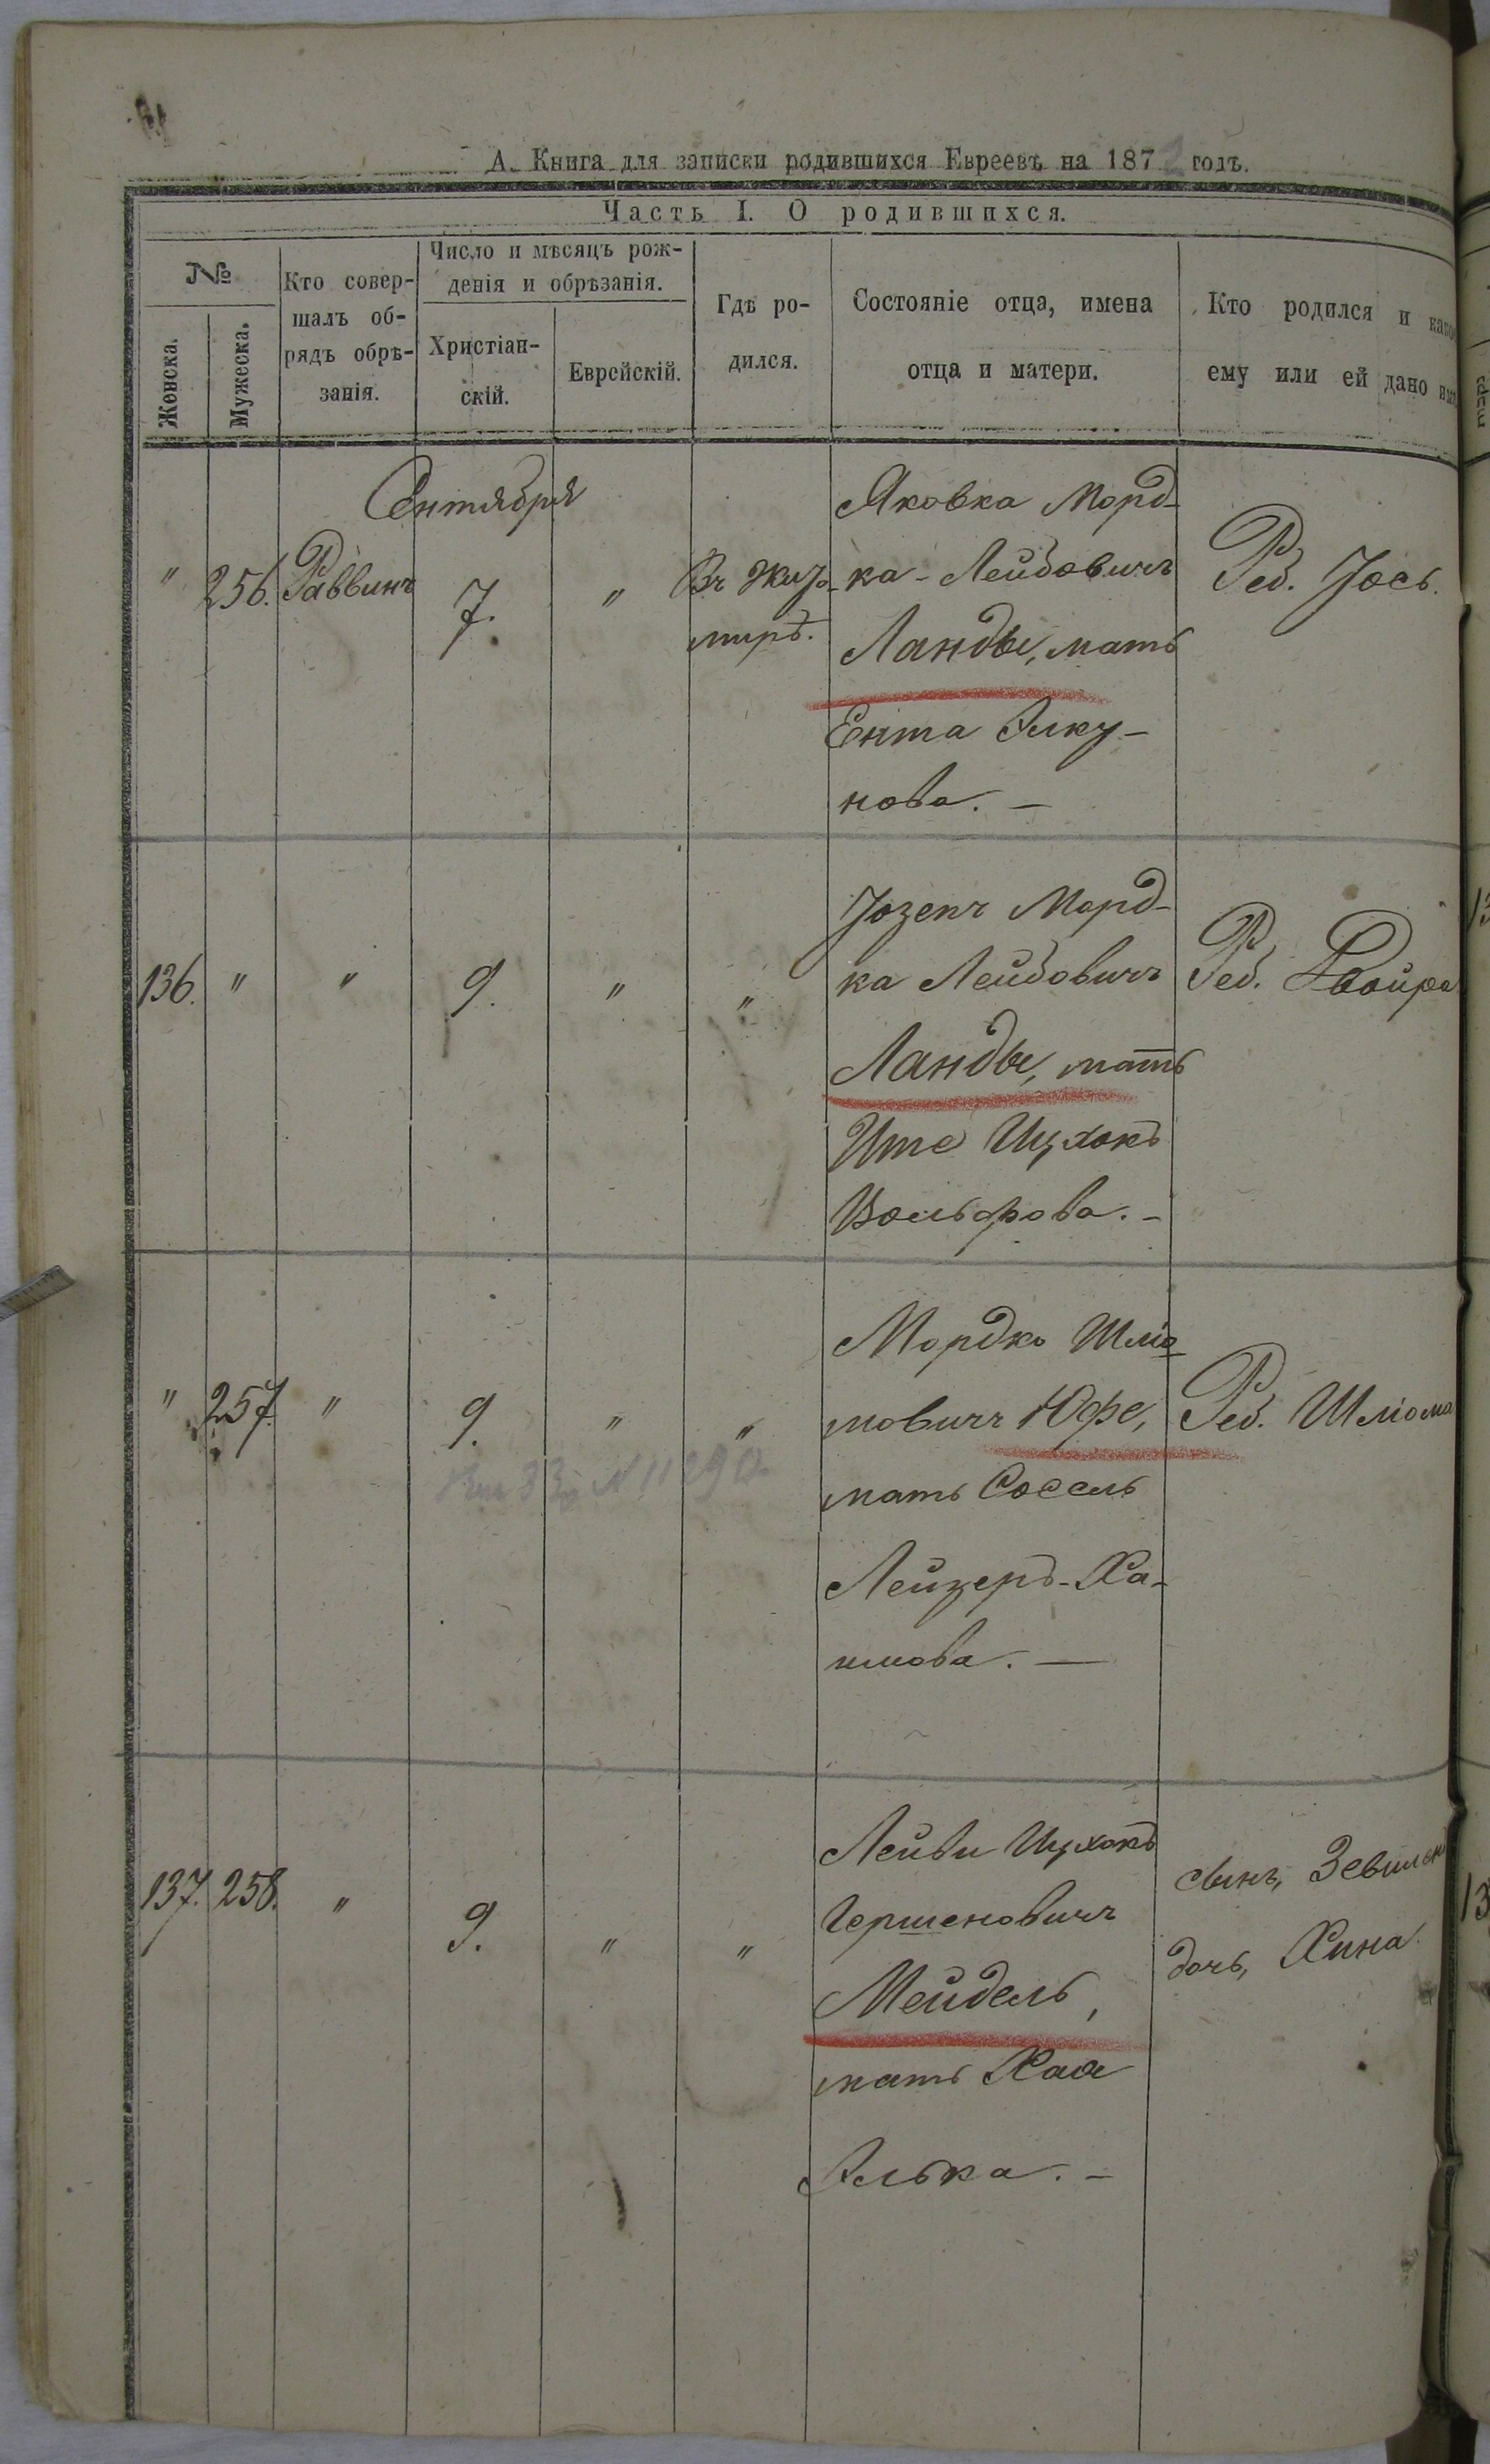 А. Книга для записки родившихся Евреевъ на 187 годъ.
Часть I. О родившихся.
№
Женска.
Мужеска.
Кто совер-
шалъ об-
рядъ обрѣ-
занія.
Число и мѣсяцъ рож-
денія и обрѣзанія.
Христіан-
скій.
Еврейскій.
Гдѣ ро-
дился.
Состояніе отца, имена
отца и матери.
Кто родился и
ему или ей дано
Сентября
" 256. Раввинъ 7. " Въ Жито-
мирѣ.
Яковка Морд-
ка-Лейбовичъ
Ланды, мать
Ента Элку-
нова. —
Реб. Іось.
136. " " 9. " "
Іозепъ Морд-
ка Лейбовичъ
Ланды, мать
Ите Ицхокъ
Вольфова. -
Реб. Двойра
" 257. " 9. " "
Мордко Шліо-
мовичъ Юфе,
мать Соссль
Лейзеръ-Ха-
имова. —
Реб. Шліома
137. 258. " 9. " "
Лейви Ицхокъ
Гершеновичъ
Мейдель,
мать Хая
Элька. -
сынъ,
дочь, Хина.